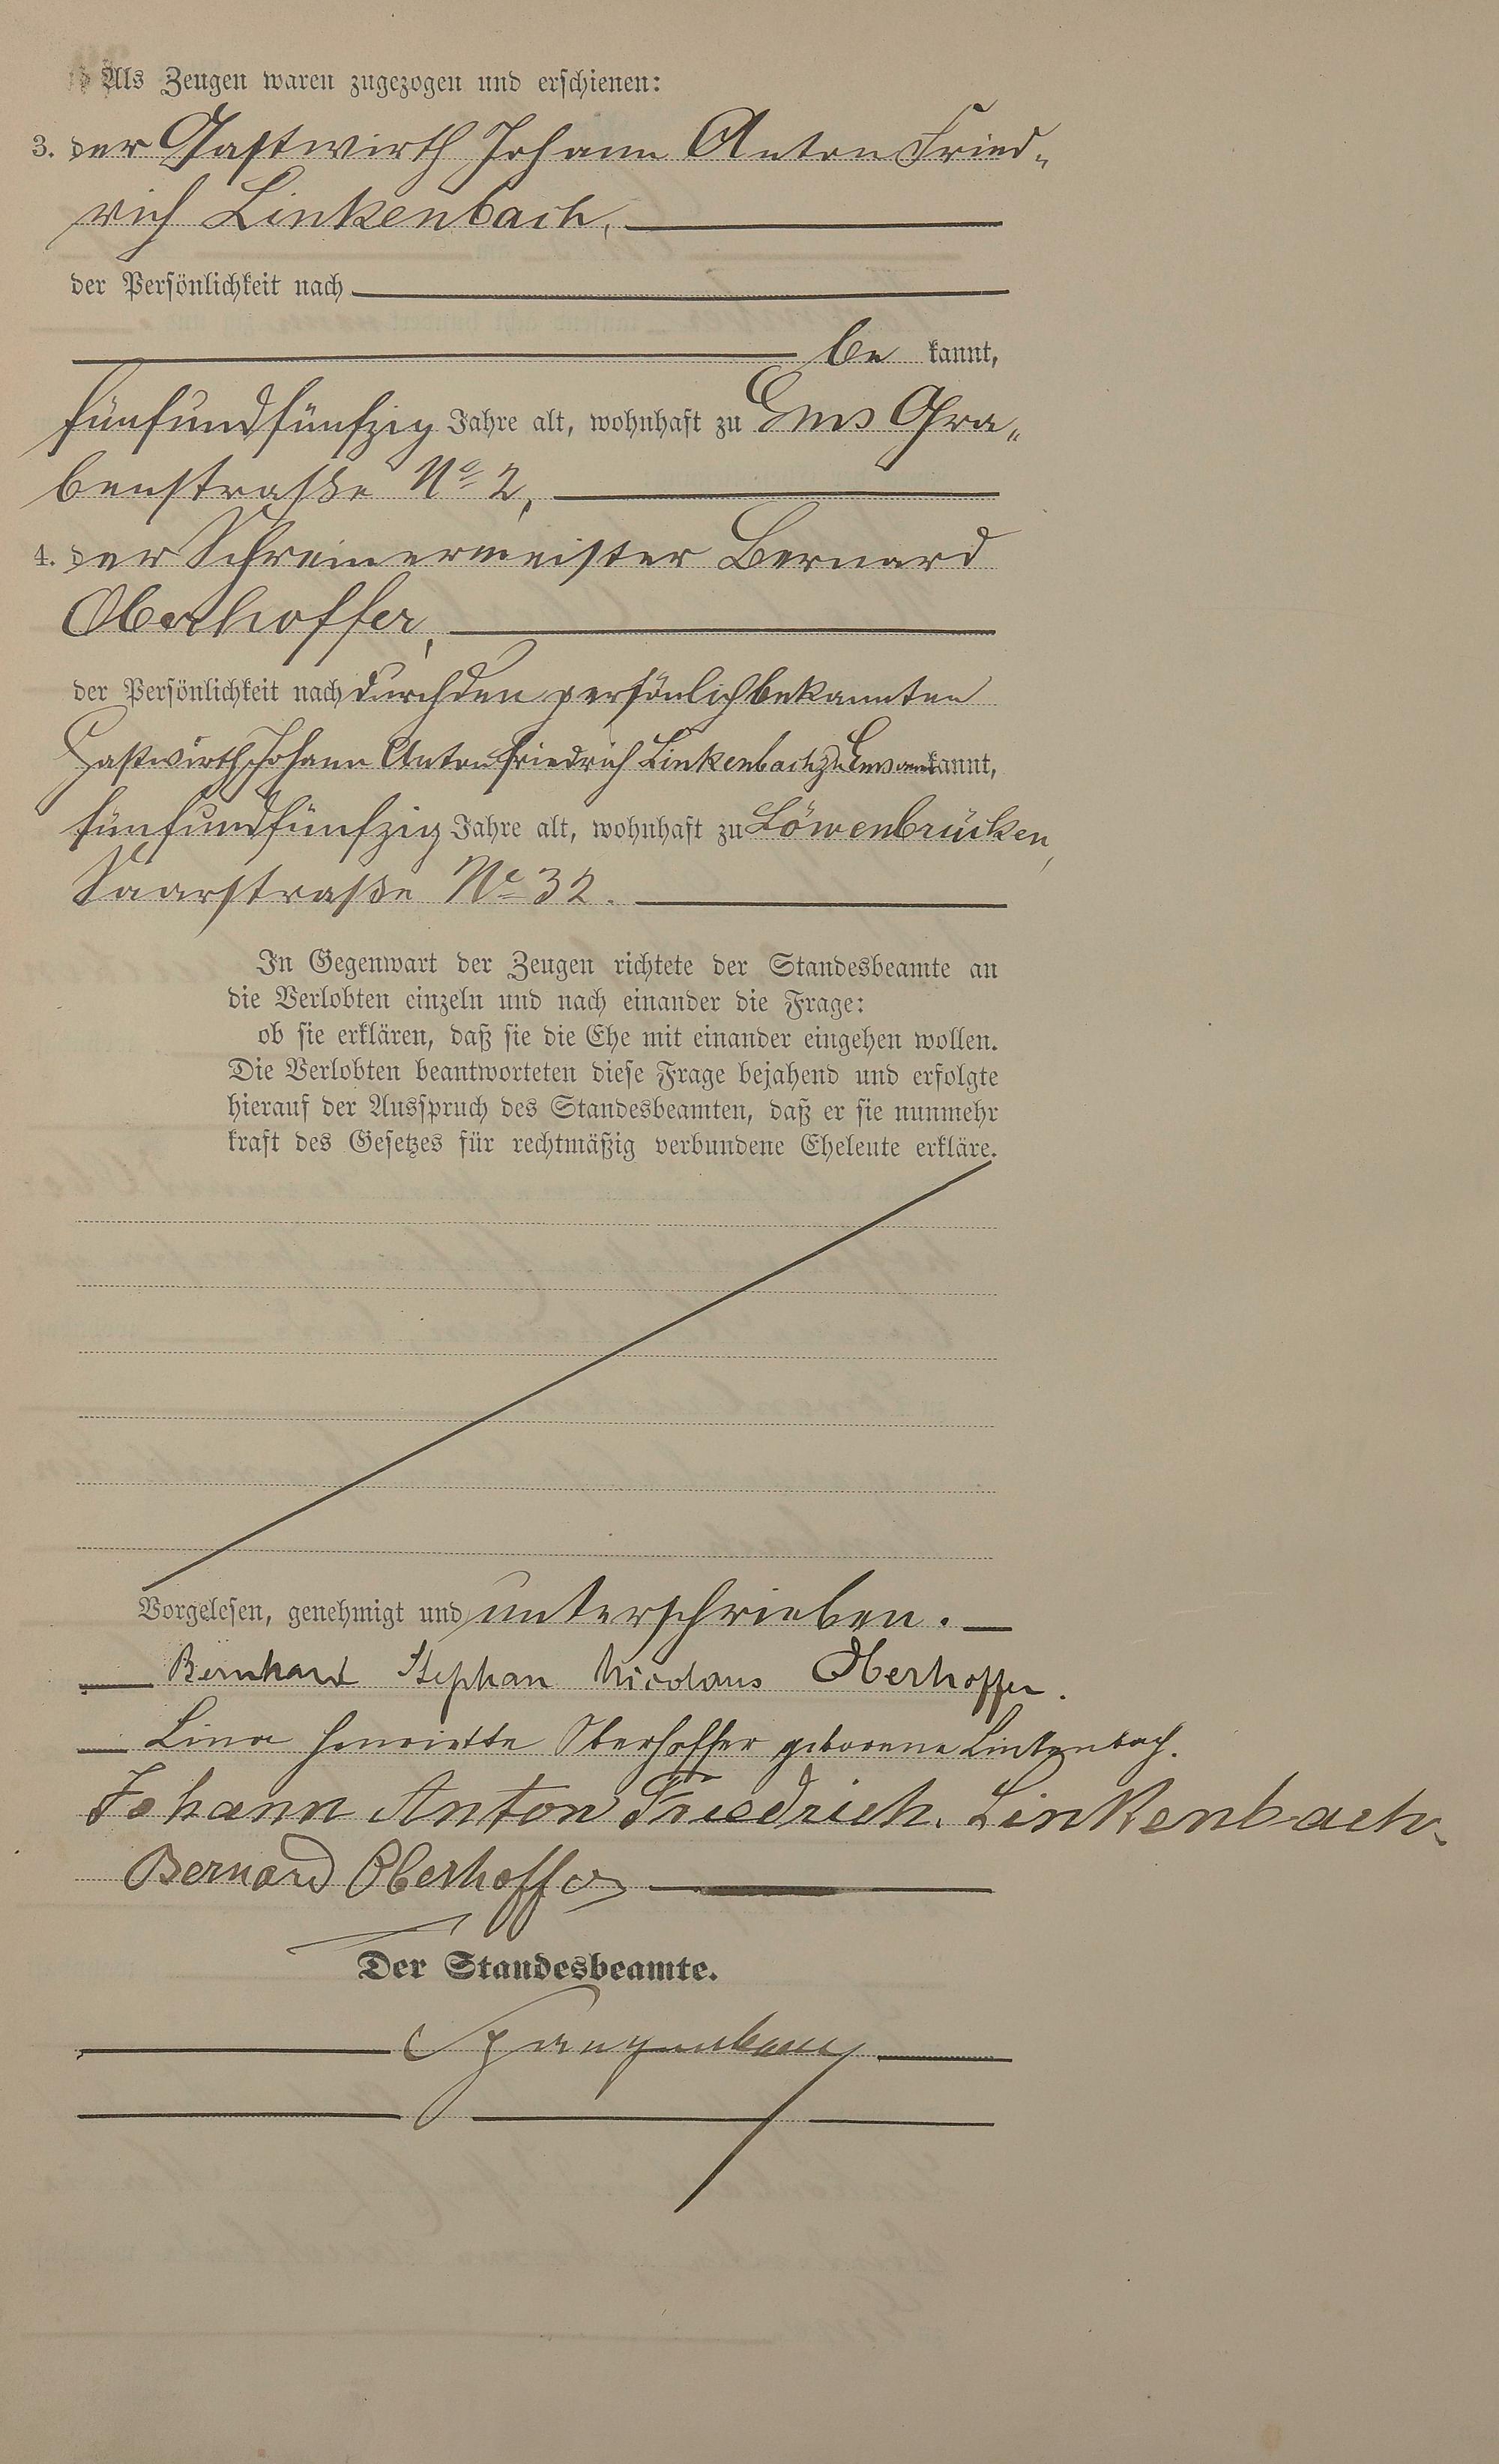 Als Zeugen waren zugezogen und erschienen:
3. der Gastwirth Johann Anton Fried-
rich Linkenbach,
der Persönlichkeit nach
be kannt,
fünfundfünfzig Jahre alt, wohnhaft zu Ems Gra-
benstraße No 2,
4. der Schreinermeister Bernard
Oberhoffer,
der Persönlichkeit nach durch den persönlich bekannten
Gastwirth Johann Anton Friedrich Linkenbach zu Ems anerkannt,
fünfundfünfzig Jahre alt, wohnhaft zu Löwenbrücken,
Saarstraße No 32.
In Gegenwart der Zeugen richtete der Standesbeamte an
die Verlobten einzeln und nach einander die Frage:
ob sie erklären, daß sie die Ehe mit einander eingehen wollen.
Die Verlobten beantworteten diese Frage bejahend und erfolgte
hierauf der Ausspruch des Standesbeamten, daß er sie nunmehr
kraft des Gesetzes für rechtmäßig verbundene Eheleute erkläre.
Vorgelesen, genehmigt und unterschrieben.
Bernhard Stephan Nicolaus Oberhoffer.
Lina Henriette Oberhoffer geborene Linkenbach.
Johann Anton Friedrich. Linkenbach.
Bernard Oberhoffer
Der Standesbeamte.